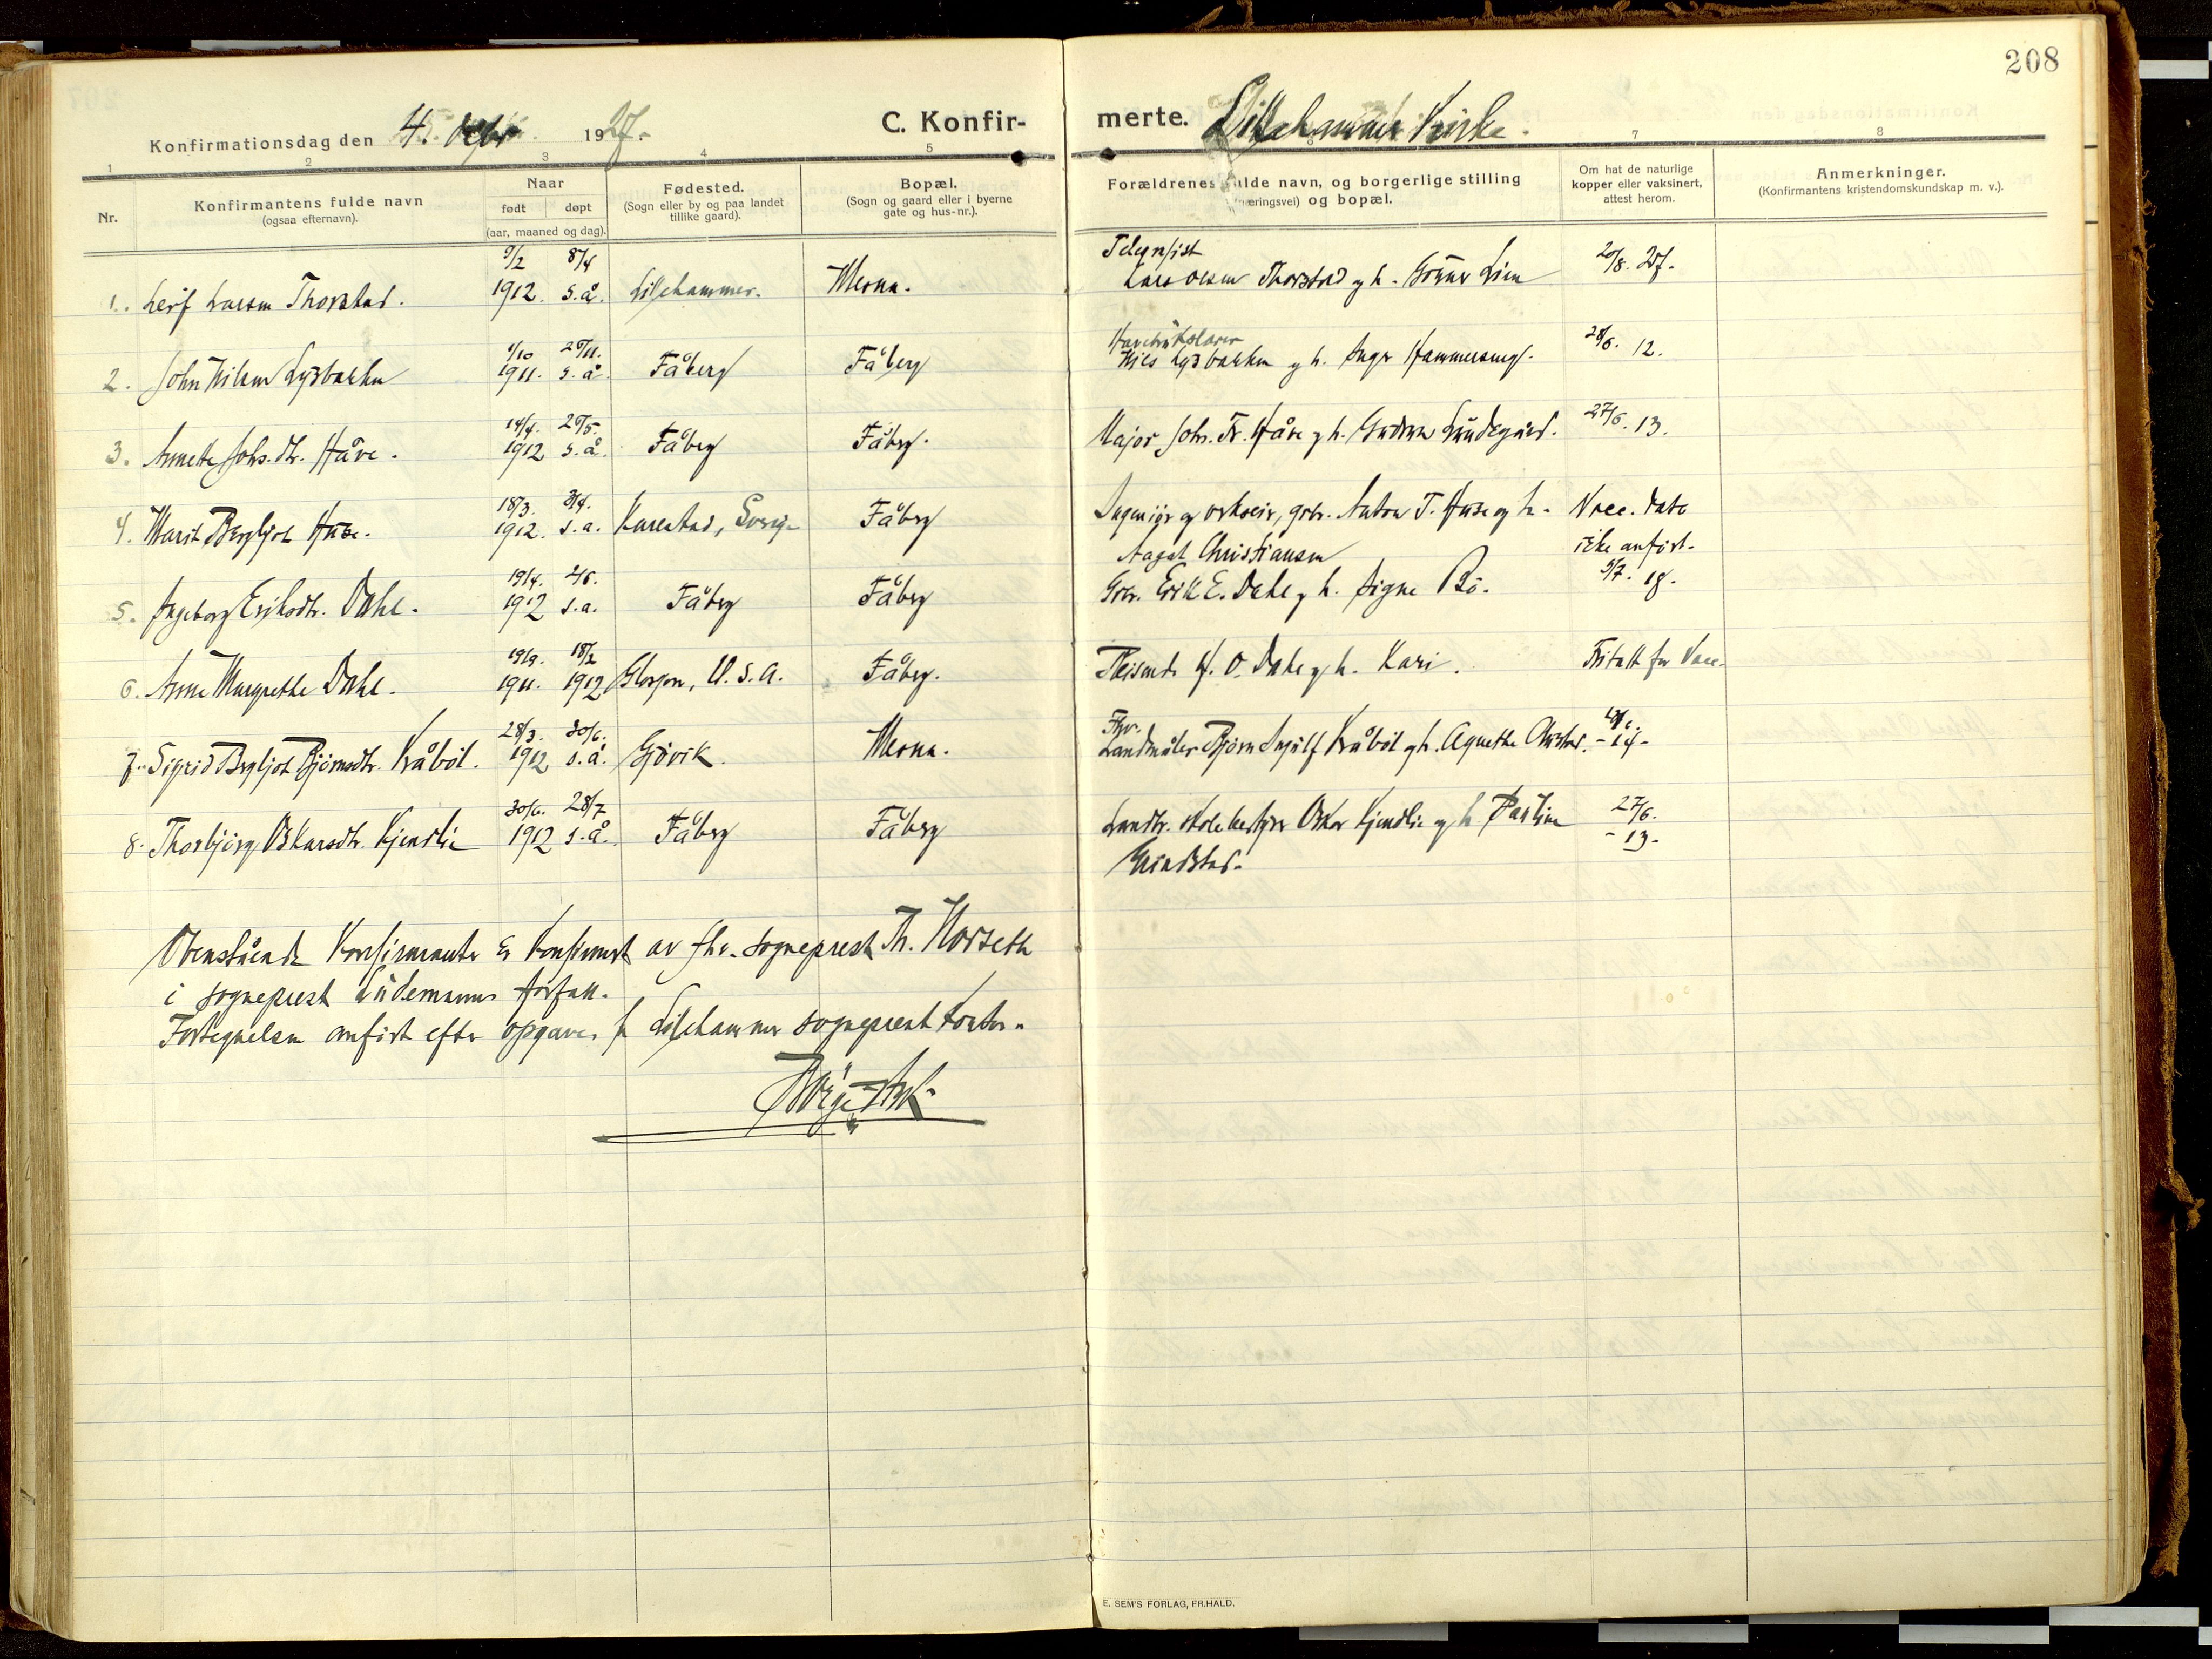 208
Konfirmationsdag den 4. 1927.
C. Konfirmerte. Lillehammer Kirke.
1 2 3 4 5 7 8
Nr.
Konfirmantens fulde navn
(ogsaa efternavn).
Naar
født døpt
(aar, maaned og dag).
Fødested.
(Sogn eller by og paa landet
tillike gaard).
Bopæl.
(Sogn og gaard eller i byerne
gate og hus-nr.).
Forældrenes fulde navn, og borgerlige stilling
(næringsvei) og bopæl.
Om hat de naturlige
kopper eller vaksinert,
attest herom.
Anmerkninger.
(Konfirmantens kristendomskundskap m. v.).
9/2 8/4 Telegrafist 20/8. 27.
1. Leif Larsen Thorstad. 1912. s.å. Lillehammer. Mesna. Lars Olsen Thorstad og h. Lien
1/10 28/6. 12.
2. John Nilsen Lysbakken 1911. s.å. Fåberg Fåberg Nils Lysbakken og h. Inga
14/4. 27/6. 13.
3. Annete Johs.dtr. Håve. 1912 s.å. Fåberg Fåberg. Major Johs. Fr. Håve og h. Gudrun Lundegård.
18/3. Ingeniør og gbr. Anton T. og h. Vacc. dato
4. Marit Bergljot 1912. s.a. Karlstad, Sverige Fåberg Aagot Christiansen ikke anført.
19/4. 2/6. 5/7. 18.
5. Ingeborg Eriksdtr. Dahl. 1912 s.a. Fåberg Fåberg Gbr. Erik E. Dahl og h. Signe Bö.
19/9. 18/2
6. Anne Margrethe Dahl. 1911. 1912 U.S.A. Fåberg. O. Dahl og h. Kari. Fritatt for Vacc.
28/3. 30/6. Fhv.
7. Sigrid Bergljot Bjørnsdtr. Kråböl. 1912 s.å. Gjövik. Mesna. Landmåler Bjørn Kråböl og h. Agnethe - 14 -
30/6. 28/7 27/6.
8. Thorbjörg Oskarsdtr. Kjendlie 1912 s.å. Fåberg Fåberg Landbr. skolebestyrer Oskar Kjendlie og h. Pauline - 13 -
Grindstad.
Ovenstående Konfirmanter er konfirmert av fhv. sogneprest Th. Norseth
i sogneprest Lüdemanns forfall.
Fortegnelsen anført efter opgave fr Lillehammer sogneprestkontor.
E. SEM'S FORLAG, FR.HALD.